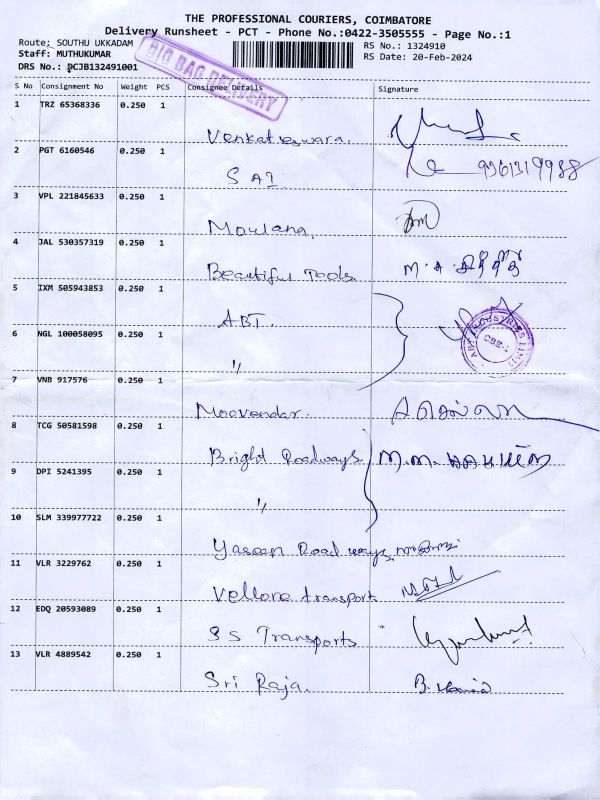 THE PROFESSIONAL COURIERS, COIMBATORE
Delivery Runsheet - PCT - Phone No.:0422-3505555 - Page No.:1
Route: SOUTHU UKKADAM
Staff: MUTHUKUMAR
DRS No.: PCJB132491001
BIG BAG DELIVERY
RS No.: 1324910
RS Date: 20-Feb-2024
S No Consignment No Weight PCS Consignee Details Signature
1 TRZ 65368336 0.250 1
Venkateswara
2 PGT 6160546 0.250 1
SAI 9361319988
3 VPL 221845633 0.250 1
Moulana.
4 JAL 530357319 0.250 1
Beautiful Tools
5 IXM 505943853 0.250 1
ABT.
6 NGL 100058095 0.250 1
"
7 VNB 917576 0.250 1
Moovendar.
8 TCG 50581598 0.250 1
Bright Roadways
9 DPI 5241395 0.250 1
"
10 SLM 339977722 0.250 1
Yaseen Road ways
11 VLR 3229762 0.250 1
Vellore transport
12 EDQ 20593089 0.250 1
SS Transports
13 VLR 4889542 0.250 1
Sri Raja.